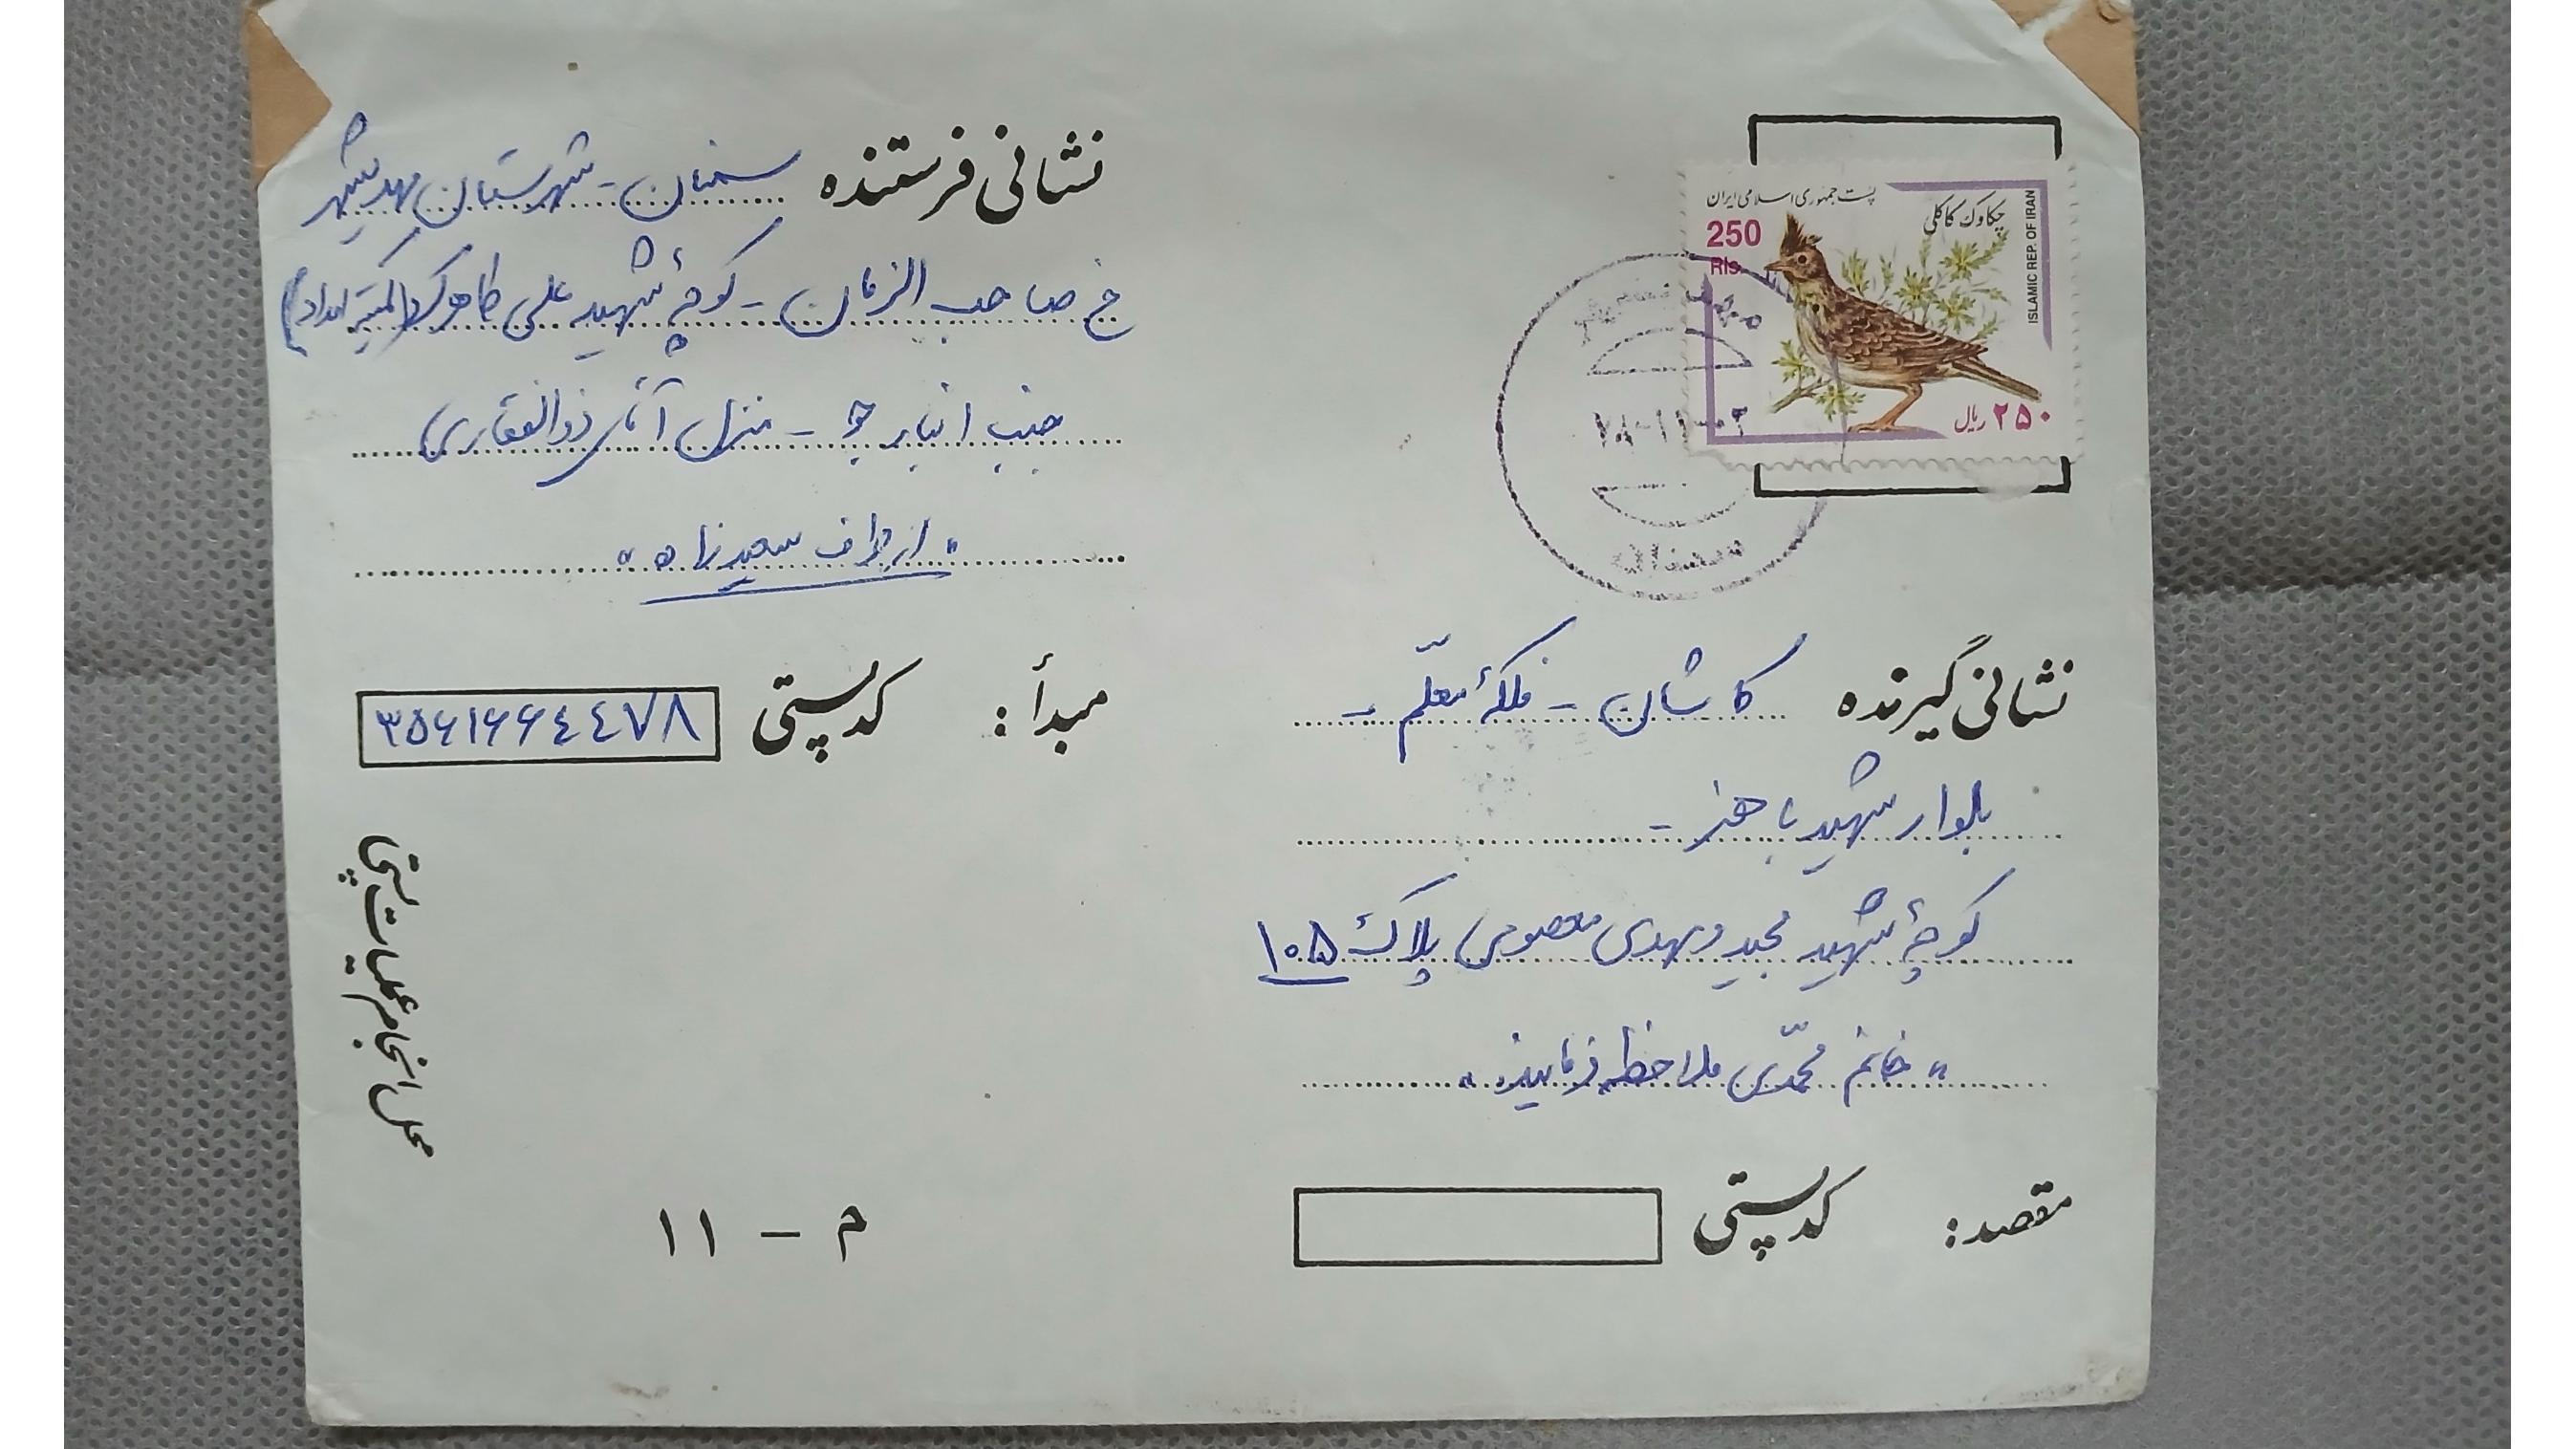 نشانی فرستنده سمنان - شهرستان مهدیشهر
خ صاحب الزمان - کوچهٔ شهید علی (کمیتهٔ امداد)
جنب انبار جو - منزل آقای ذوالفقاری
"از طرف سعیدزاده"
مبدأ: کدپستی ۳۵۶۱۶۶۴۴۷۸
محل انجام عملیات پستی
م - ۱۱
پست جمهوری اسلامی ایران
چکاوک کاکلی
250
Rls.
ISLAMIC REP. OF IRAN
۲۵۰ ریال
مهدیشهر
۷۸-۱۱-۰۲
سمنان
نشانی گیرنده کاشان - فلکهٔ معلّم -
بلوار شهید باهنر -
کوچهٔ شهید مجید و مهدی معصومی پلاک ۱۰۵
"خانم محمّدی ملاحظه فرمایند"
مقصد: کدپستی